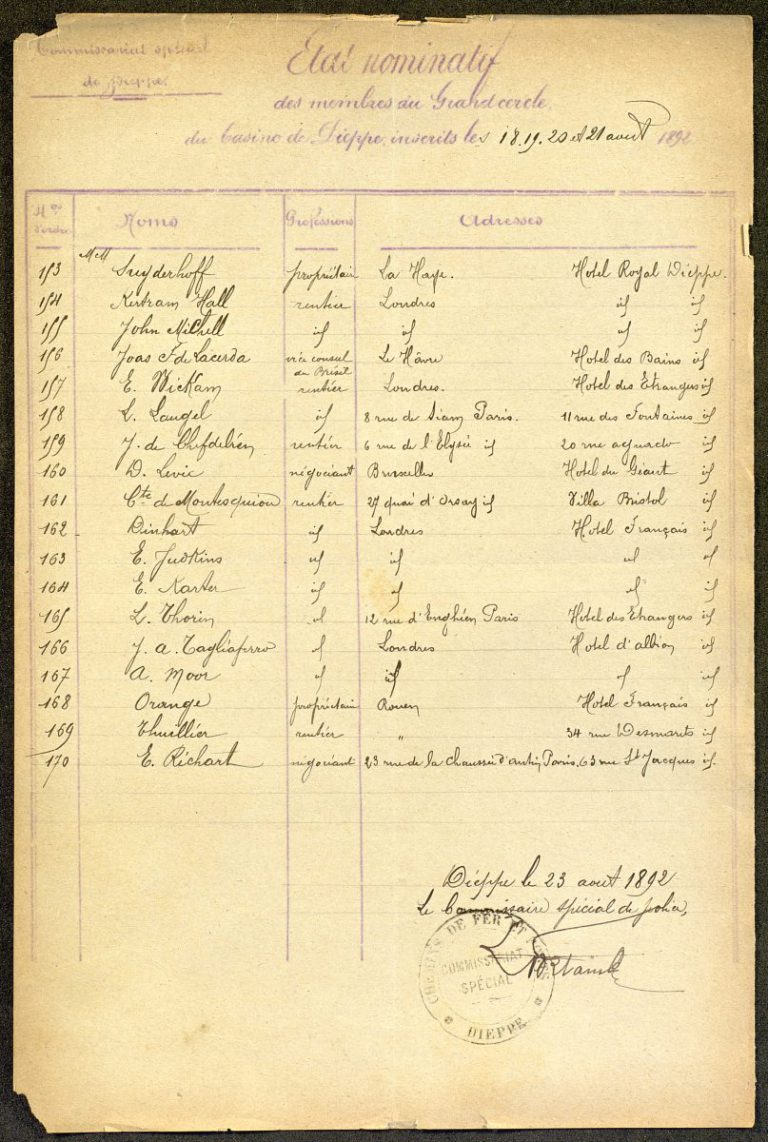 Commissariat spécial
de Dieppe.
Etat nominatif
des membres du Grand cercle
du Casino de Dieppe, inscrits les 18.19.20 et 21 aout 1892
Nos d'ordre Noms Professions Adresses
MM
153 Suyderhoff propriétair La Haye. Hotel Royal Dieppe.
154 Kertram Hall rentier Londres id id
155 John Mitchell id id id id
156 Joas F. de Lacerda vice consul du Brésil Le Hâvre Hotel des Bains id
157 E. Wickam rentier Londres. Hotel des Etrangers id
158 L. Laugel id 8 rue de Siam Paris. 11 rue des Fontaines id
159 J. de Chefdebien rentier 6 rue de l'Elysée id 20 rue aguado id
160 D. Levic négociant Bruxelles Hotel du Géant id
161 Cte de Montesquiou rentier 27 quai d'Orsay id Villa Bristol id
162 Dinhart id Londres Hotel Français id
163 E. Judkins id id id id
164 E. Karter id id id id
165 L. Thorin id 12 rue d'Enghien Paris Hotel des Etrangers id
166 J. A. Tagliaferro id Londres Hotel d'albion id
167 A. Moor id id id id
168 Orange propriétair Rouen Hotel Français id
169 Thuillier rentier " 34 rue Desmarets id
170 E. Richart négociant 23 rue de la Chaussée d'antin Paris. 63 rue St Jacques id.
Dieppe le 23 aout 1892
Le Commissaire spécial de police,
CHEMINS DE FER ET
COMMISSARIAT
SPÉCIAL
DIEPPE